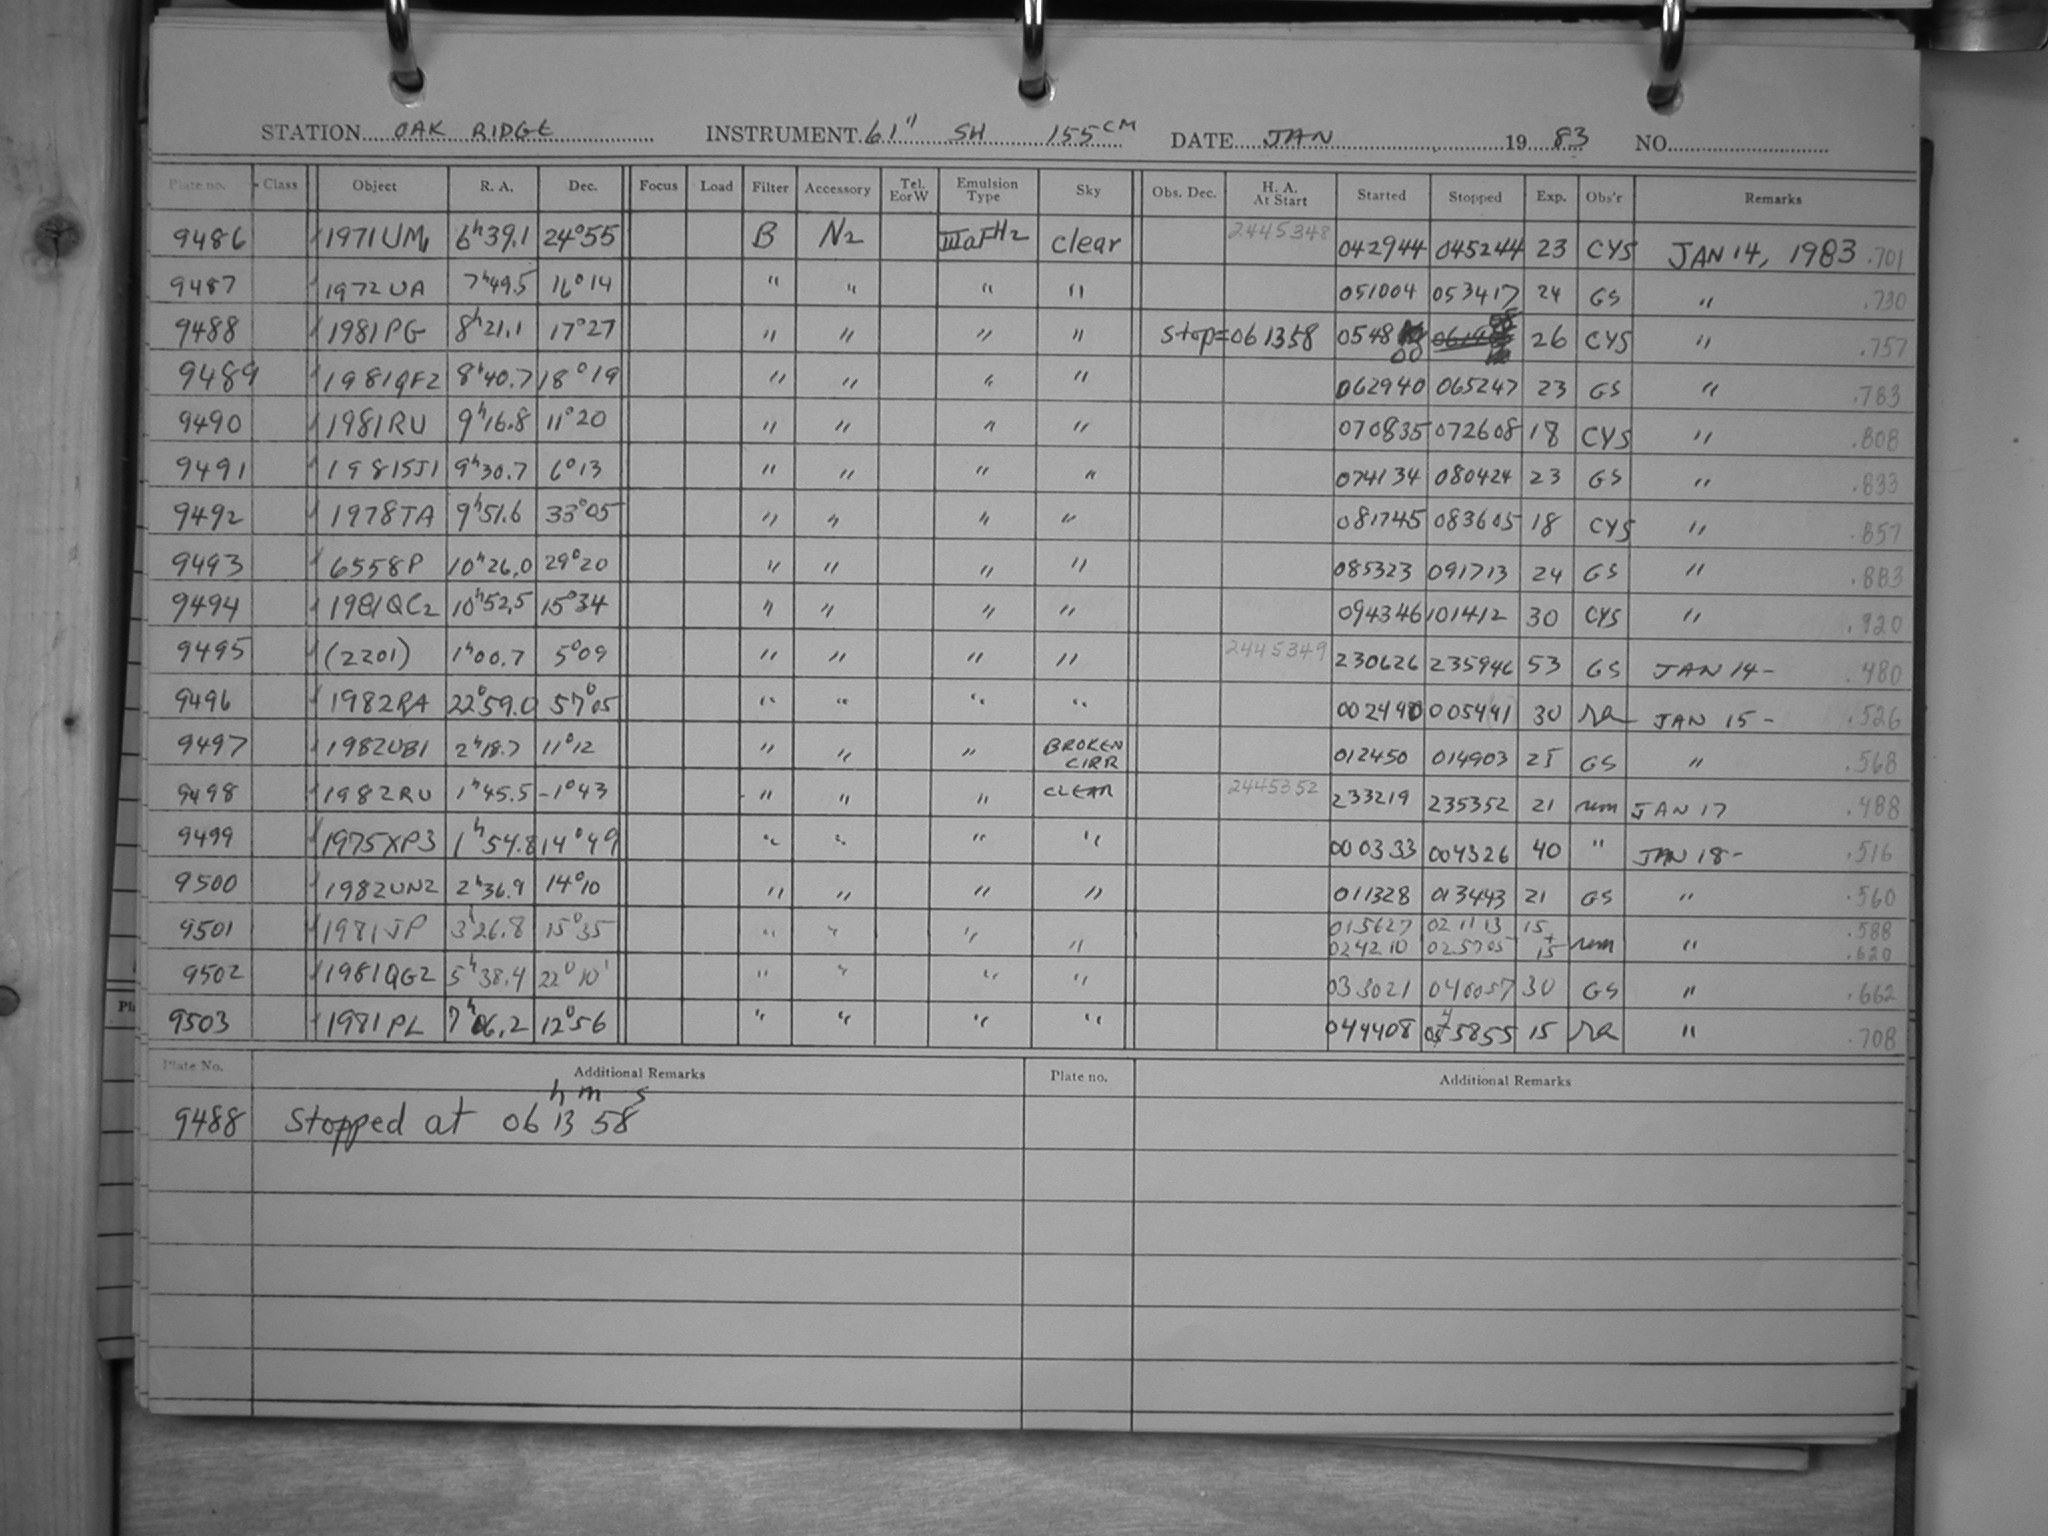 STATION OAK RIDGE INSTRUMENT 61" SH 155 CM DATE JAN 19 83 NO.
Plate no. Class Object R. A. Dec. Focus Load Filter Accessory Tel. E or W Emulsion Type Sky Obs. Dec. H. A. At Start Started Stopped Exp. Obs'r Remarks
9486 1971UM1 6h39.1 24°55 B N2 IIIaFH2 clear 2445348 042944 045244 23 CYS JAN 14, 1983 .701
9487 1972UA 7h49.5 16°14 " " " " 051004 053417 24 GS " .730
9488 1981PG 8h21.1 17°27 " " " " stop=061358 054800 26 CYS " .757
9489 1981QF2 8h40.7 18°19 " " " " 062940 065247 23 GS " .783
9490 1981RU 9h16.8 11°20 " " " " 070835 072608 18 CYS " .808
9491 1981SJ1 9h30.7 6°13 " " " " 074134 080424 23 GS " .833
9492 1978TA 9h51.6 33°05 " " " " 081745 083605 18 CYS " .857
9493 6558P 10h26.0 29°20 " " " " 085323 091713 24 GS " .883
9494 1981QC2 10h52.5 15°34 " " " " 094346 101412 30 CYS " .920
9495 (2201) 1h00.7 5°09 " " " " 2445349 230626 235946 53 GS JAN 14- .480
9496 1982RA 22°59.0 57°05 " " " " 002440 005441 30 JAN 15- .526
9497 1982UB1 2h18.7 11°12 " " " BROKEN CIRR 012450 014903 25 GS " .568
9498 1982RU 1h45.5 -1°43 " " " CLEAR 2445352 233219 235352 21 rem JAN 17 .488
9499 1975XP3 1h54.8 14°49 " " " " 000333 004326 40 " JAN 18- .516
9500 1982UN2 2h36.9 14°10 " " " " 011328 013443 21 GS " .560
9501 1981JP 3h26.8 15°35 " " " " 015627 021113 15 + .588
024210 025705 15 rem " .620
9502 1981QG2 5h38.4 22°10' " " " " 033021 040057 30 GS " .662
9503 1981PL 7h06.2 12°56 " " " " 044408 045855 15 " .708
Plate No. Additional Remarks Plate no. Additional Remarks
9488 Stopped at 06h 13m 58s